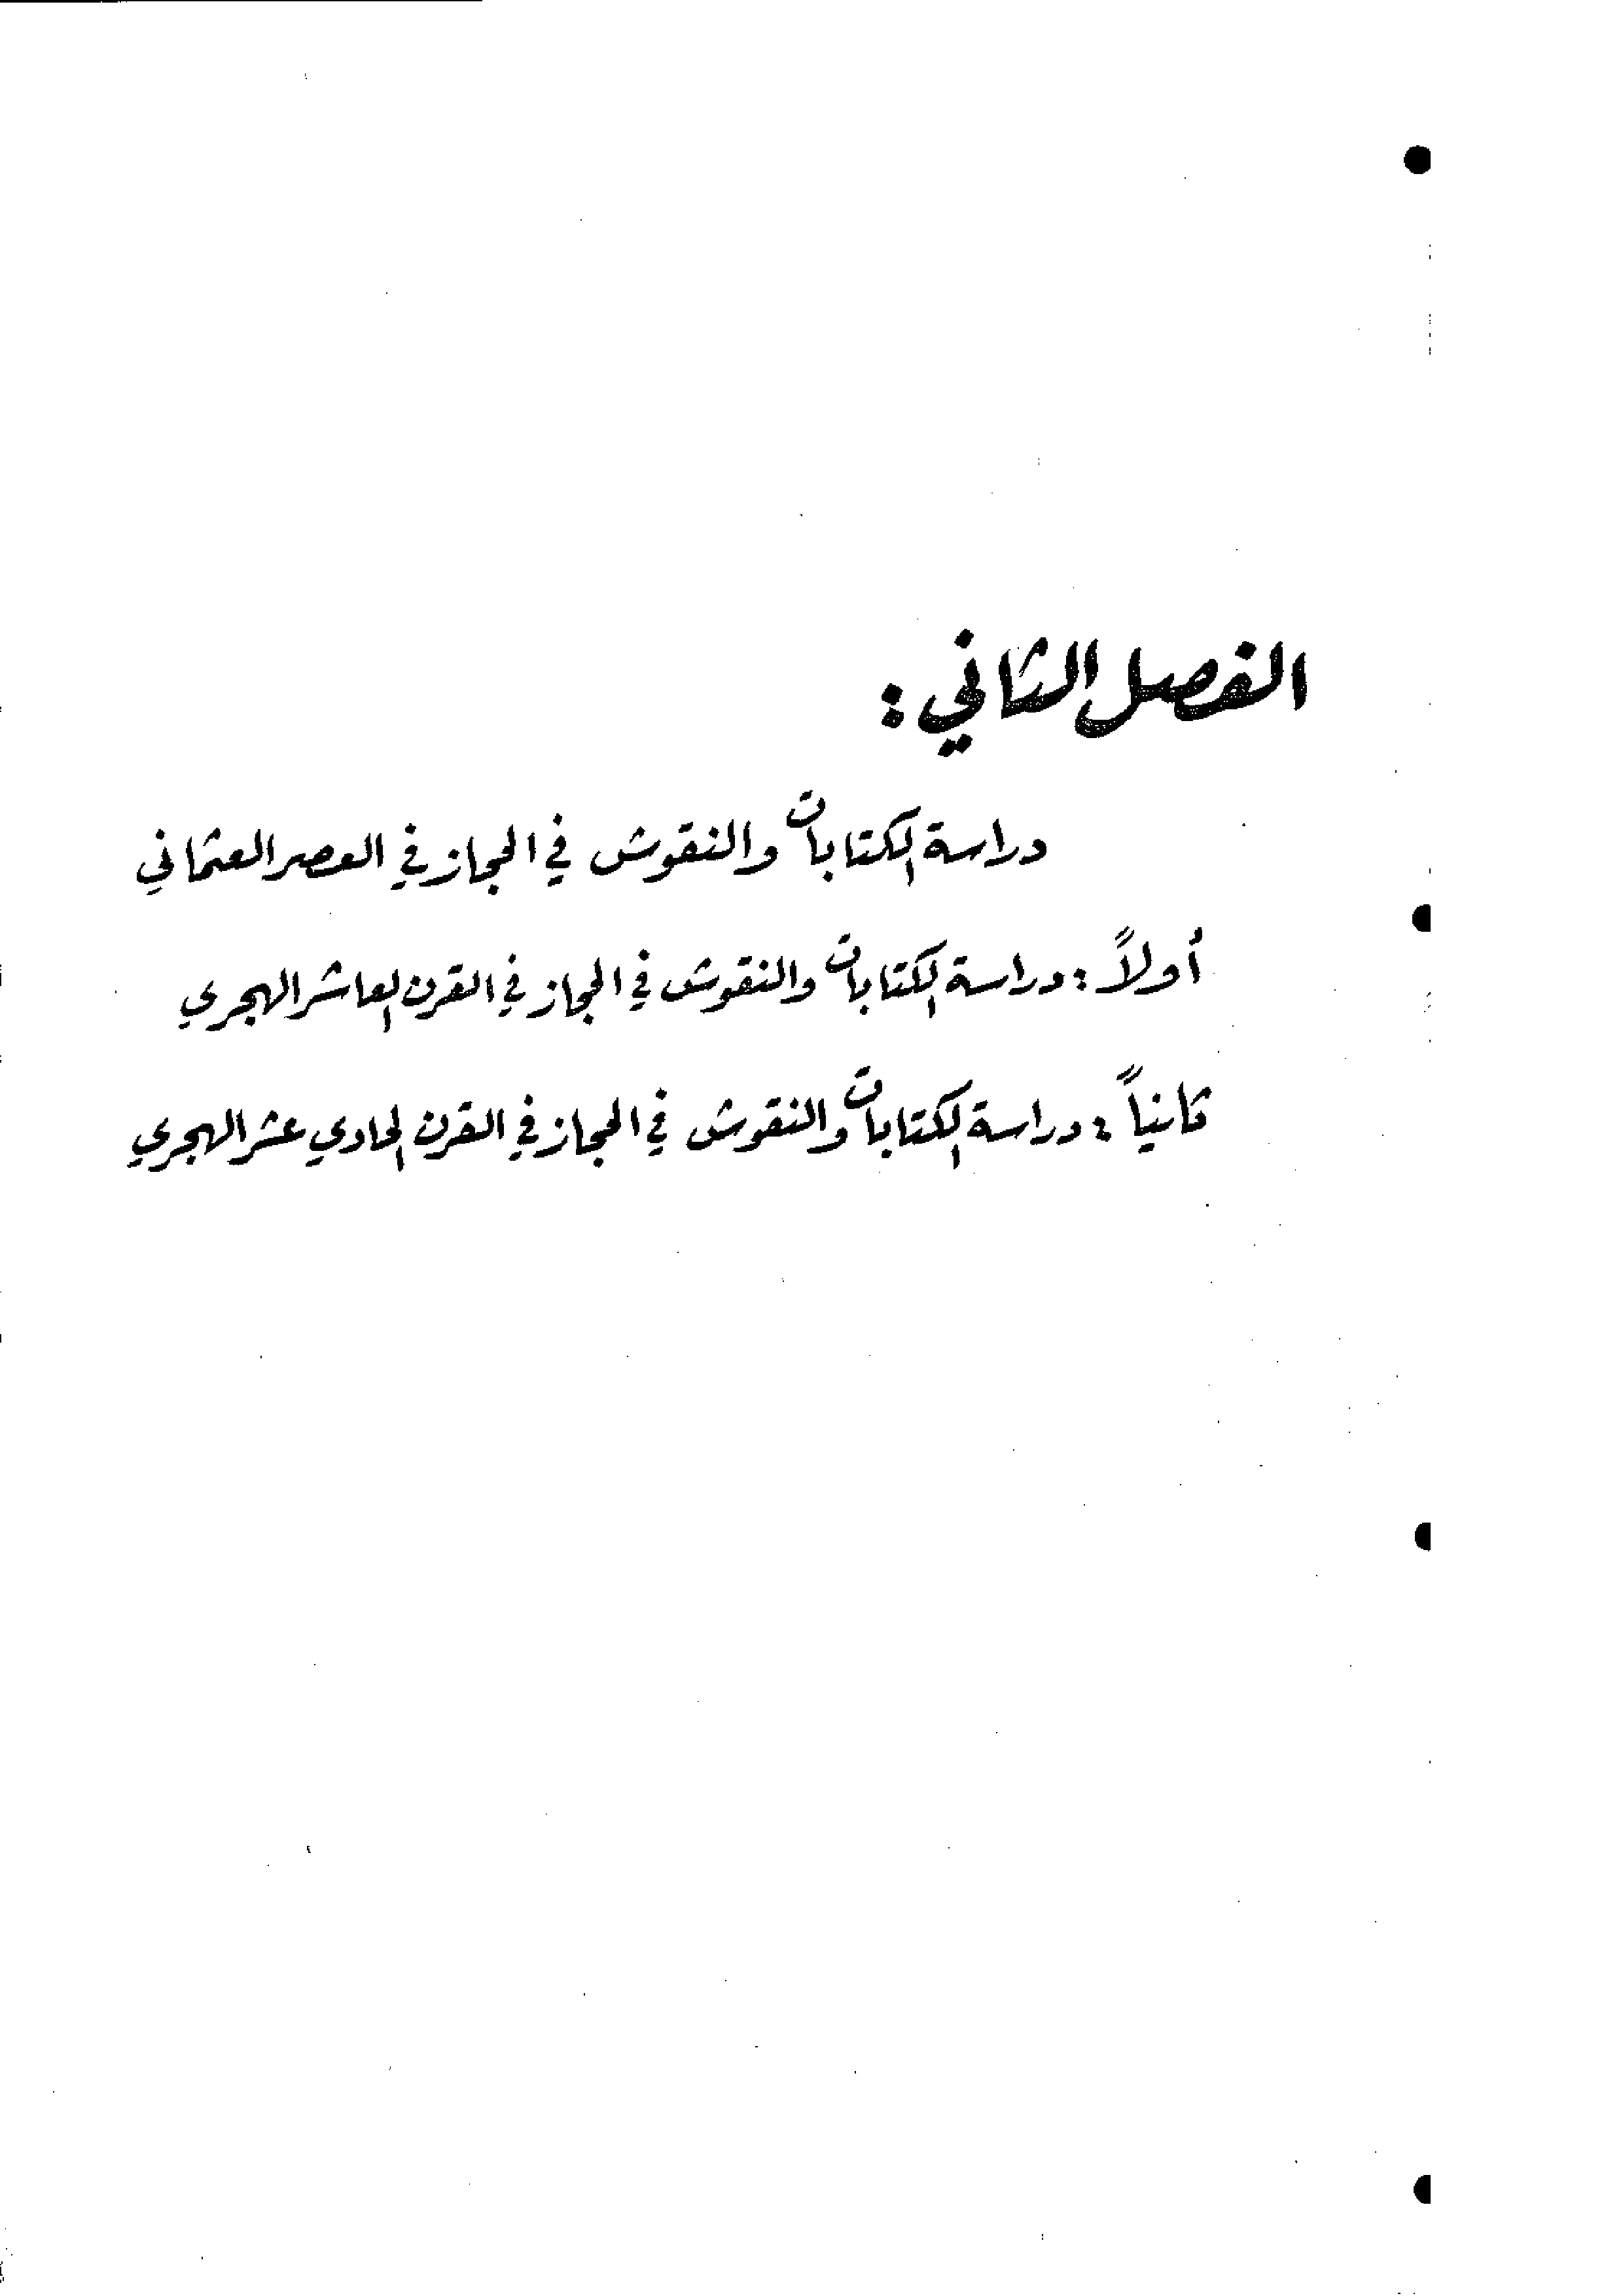 الفصل الثاني :
دراسة الكتابات والنقوش في الحجاز في العصر العثماني
أولاً : دراسة الكتابات والنقوش في الحجاز في القرن العاشر الهجري
ثانياً : دراسة الكتابات والنقوش في الحجاز في القرن الحادي عشر الهجري